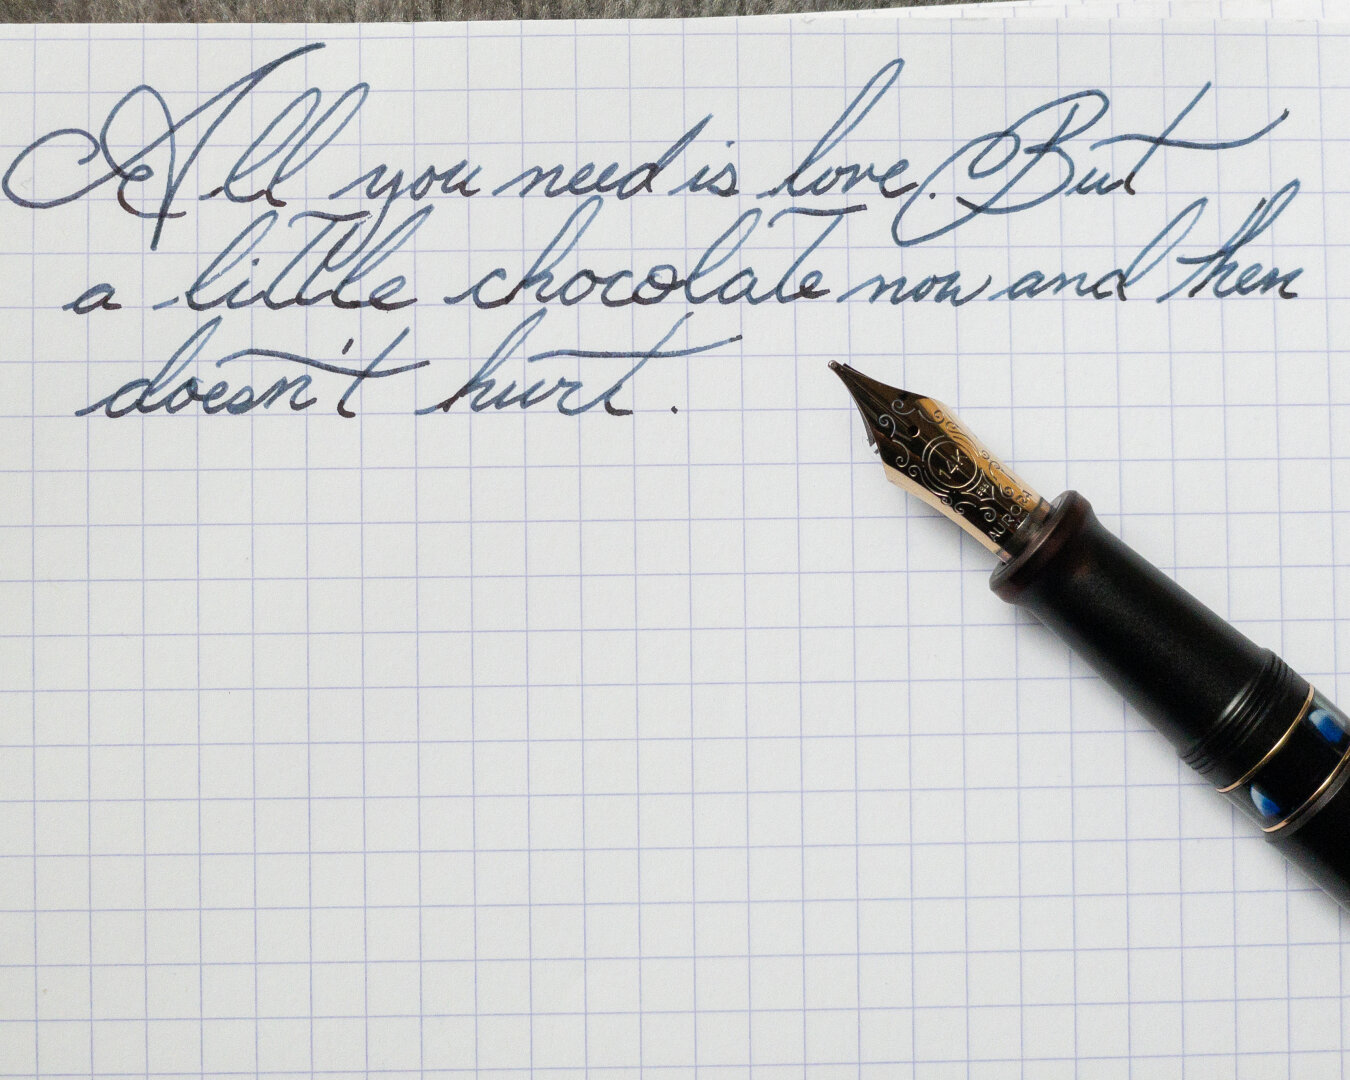 All you need is love. But
a little chocolate now and then
doesn't hurt.
14K
585
AURORA